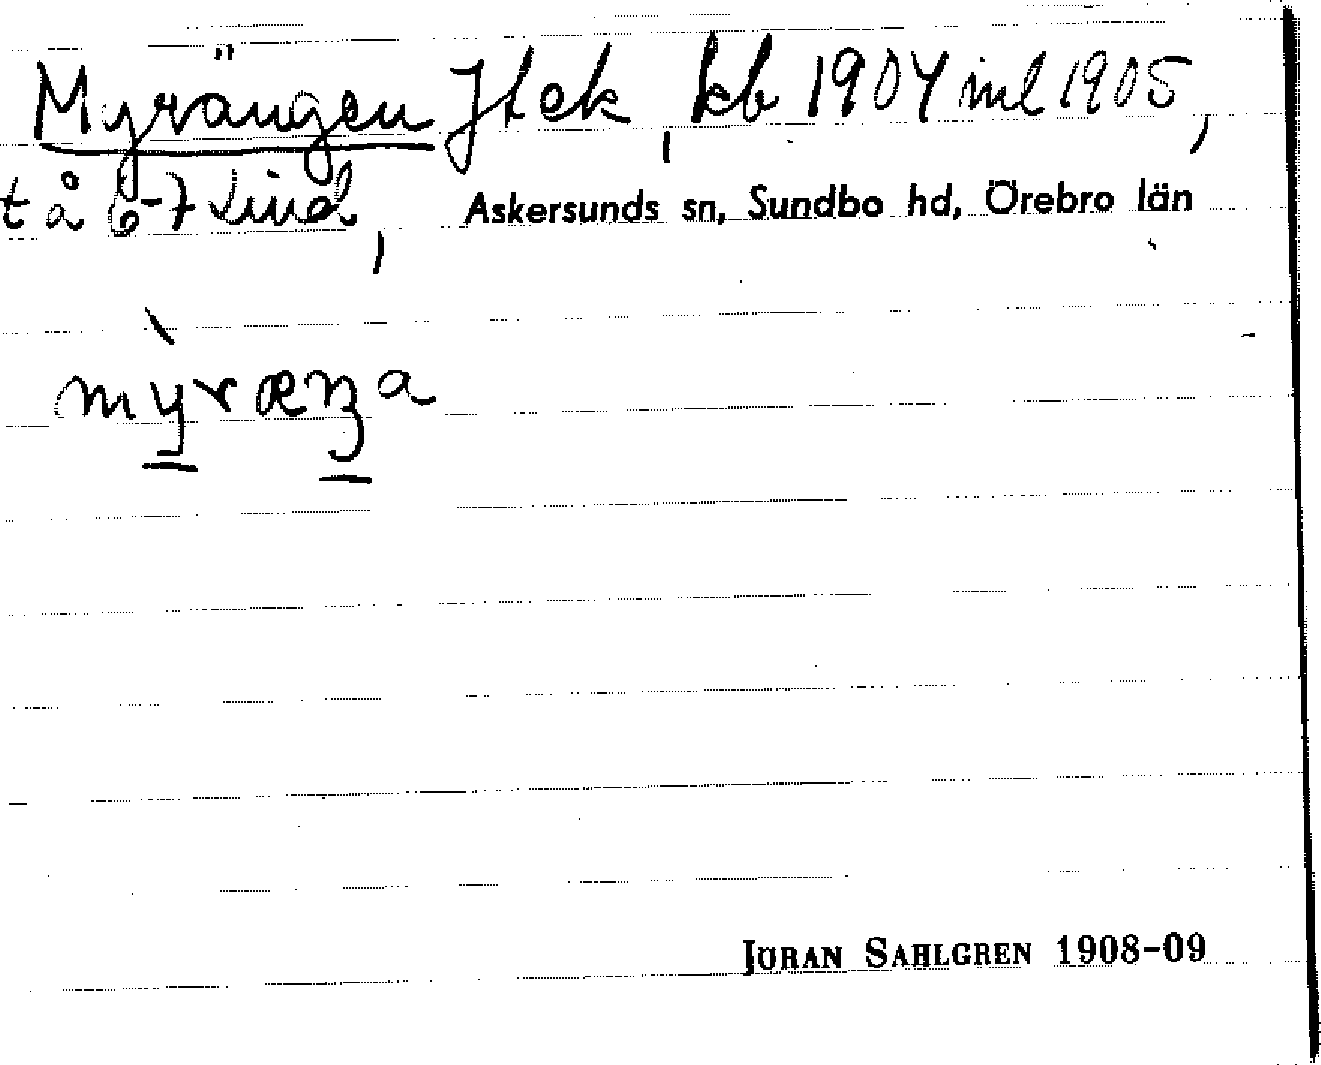 Myrängen Jlek, kb 1904 inl 1905,
tå 6-7 Lind, Askersunds sn, Sundbo hd, Örebro län
mỳræŋa
JÖRAN SAHLGREN 1908-09